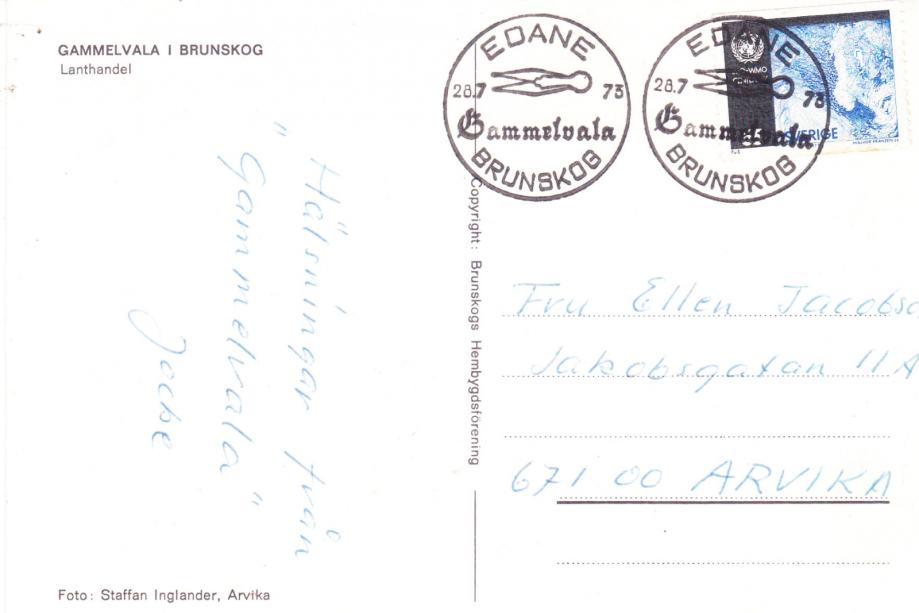 GAMMELVALA I BRUNSKOG
Lanthandel
"Hälsningar från
Gammelvala"
Jocke
Foto: Staffan Inglander, Arvika
Copyright: Brunskogs Hembygdsförening
EDANE
28.7 73
Gammelvala
BRUNSKOG
EDANE
28.7 73
Gammelvala
BRUNSKOG
SVERIGE
Fru Ellen
Jakobsgatan 11A
671 00 ARVIKA